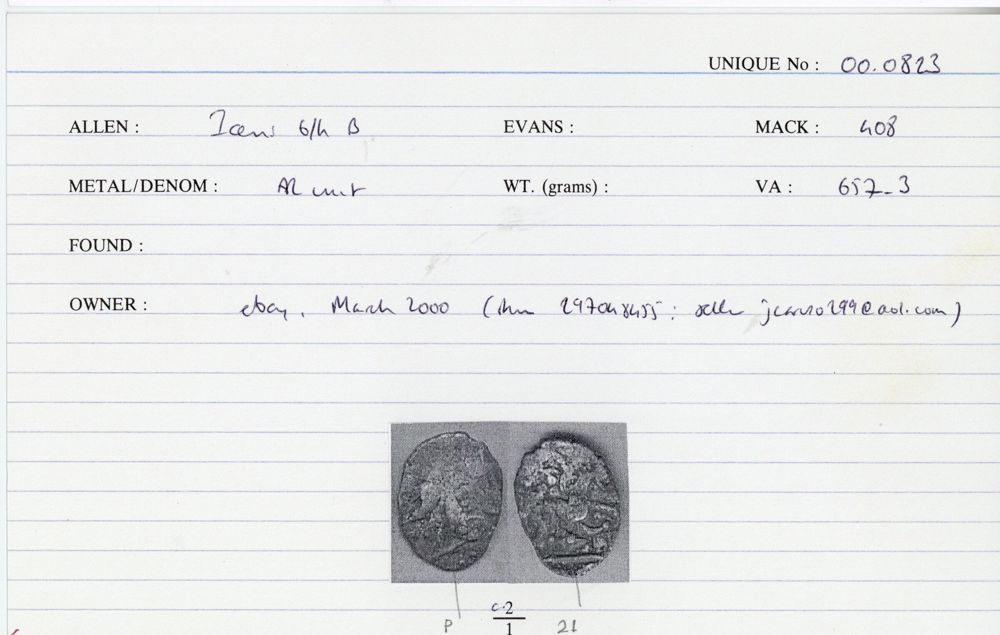 UNIQUE No : 00.0823
ALLEN : Iceni 6/h B EVANS : MACK : 408
METAL/DENOM : AR unit WT. (grams) : VA : 657-3
FOUND :
OWNER : ebay, March 2000 ( : seller @aol.com)
c.2
P 1 21